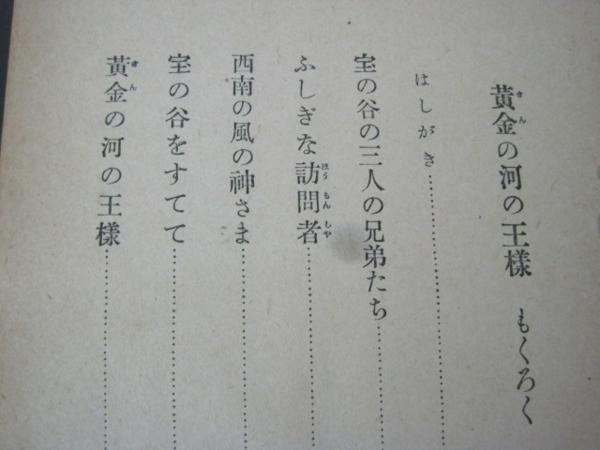 黄金の河の王様 もくろく
はしがき
宝の谷の三人の兄弟たち
ふしぎな訪問者
西南の風の神さま
宝の谷をすてて
黄金の河の王様